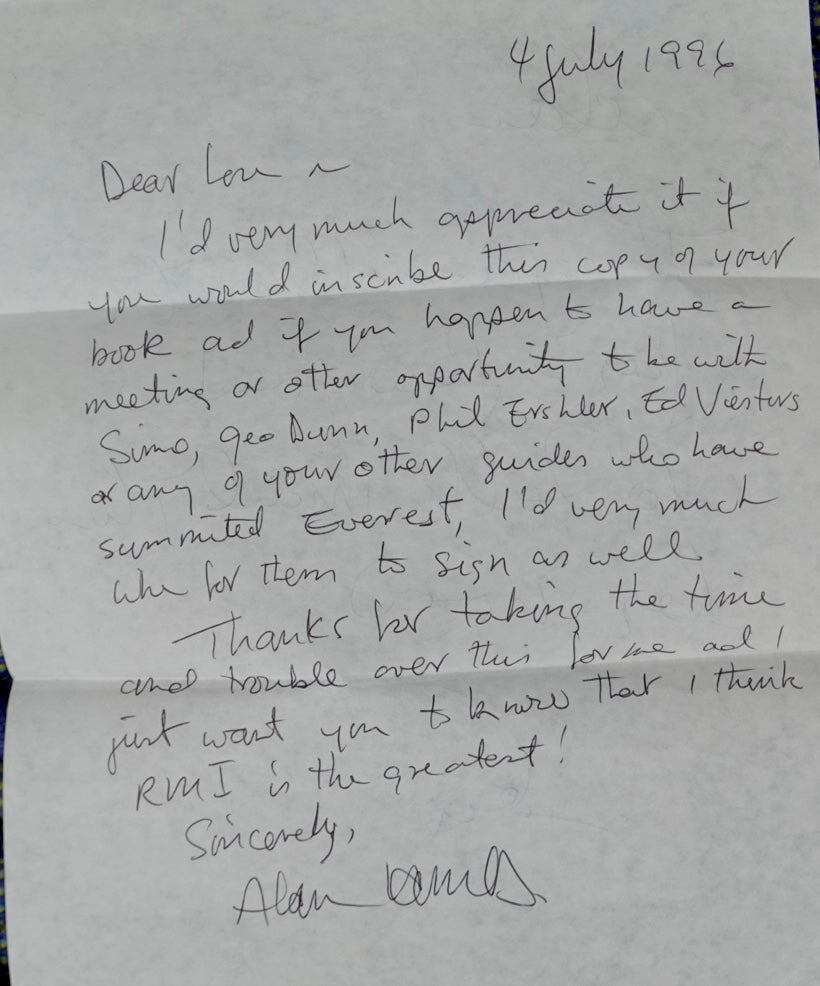 4 July 1996
Dear Lou ~
I'd very much appreciate it if
you would inscribe this copy of your
book ad if you happen to have a
meeting or other opportunity to be with
Simo, Geo Dunn, Phil Ershler, Ed Viesturs
or any of your other guides who have
summited Everest, I'd very much
like for them to sign as well.
Thanks for taking the time
and trouble over this for me ad I
just want you to know that I think
RMI is the greatest!
Sincerely,
Alan